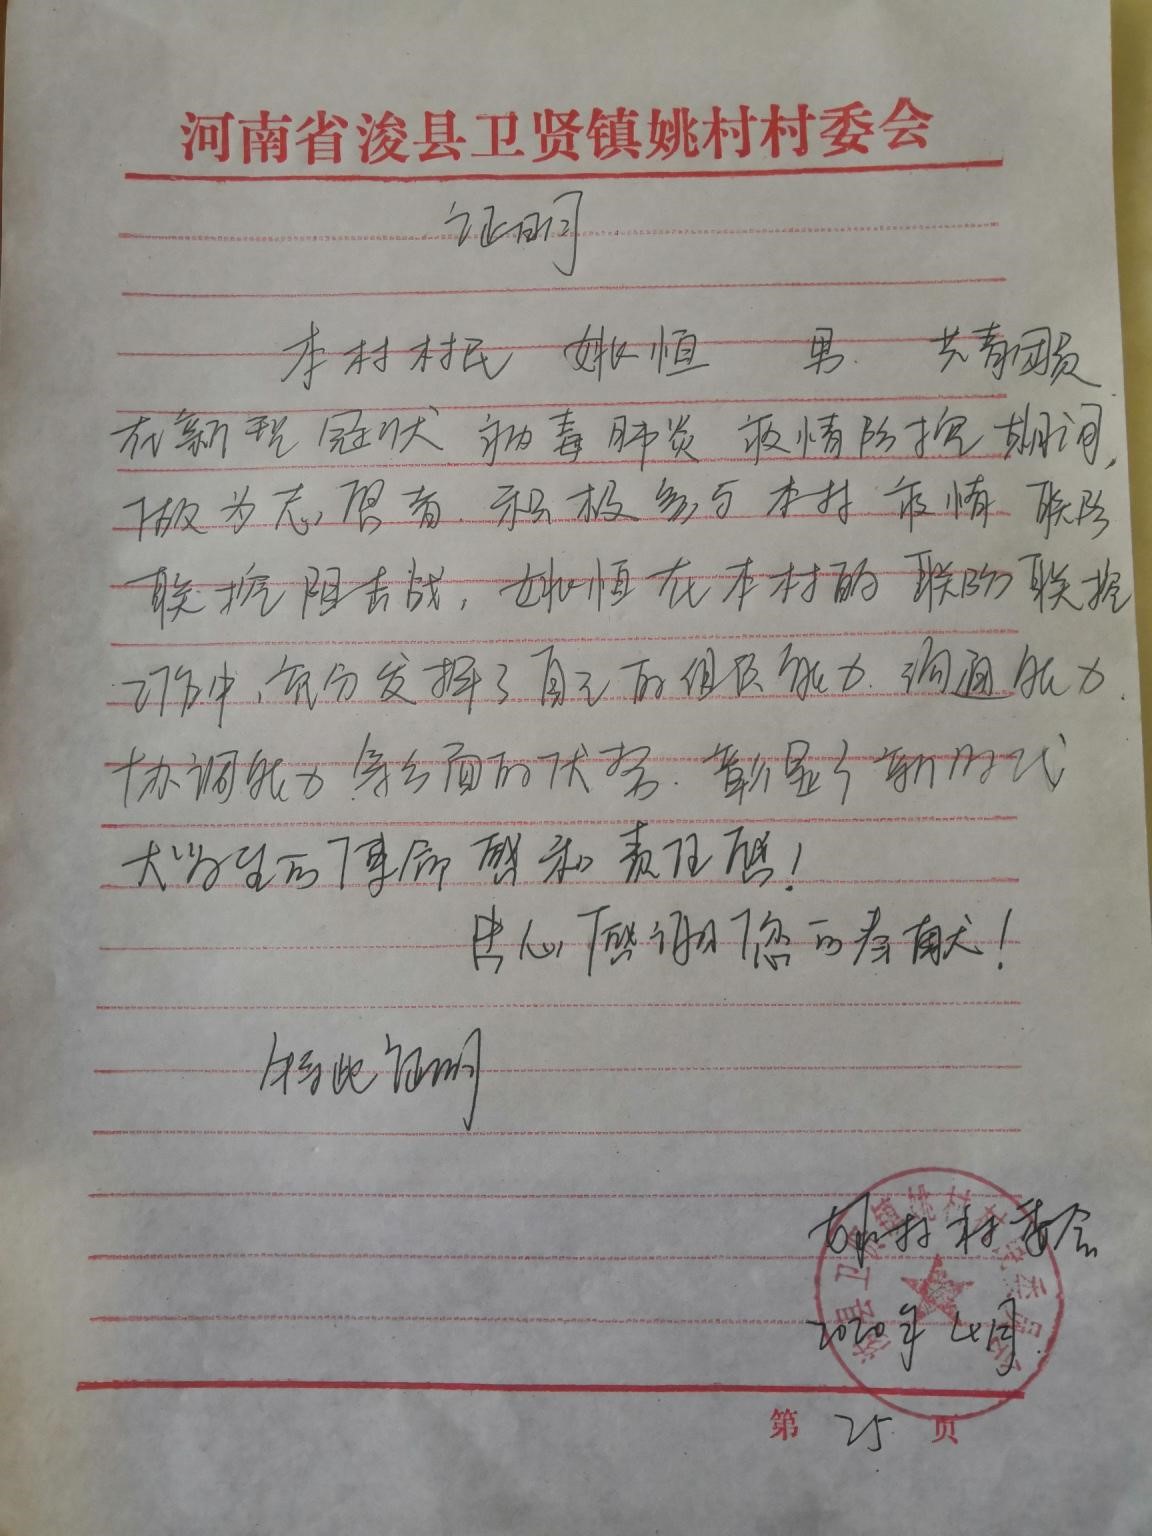 河南省浚县卫贤镇姚村村委会
证明
本村村民 姚恒 男. 共青团员
在新型冠状病毒肺炎疫情防控期间,
做为志愿者.积极参与本村疫情联防
联控阻击战,姚恒在本村的联防联控
工作中,充分发挥了自己的组织能力.沟通能力.
协调能力等方面的优势.彰显了新时代
大学生的使命感和责任感!
忠心感谢您的奉献!
特此证明
姚村村委会
2020年4月
第 25 页